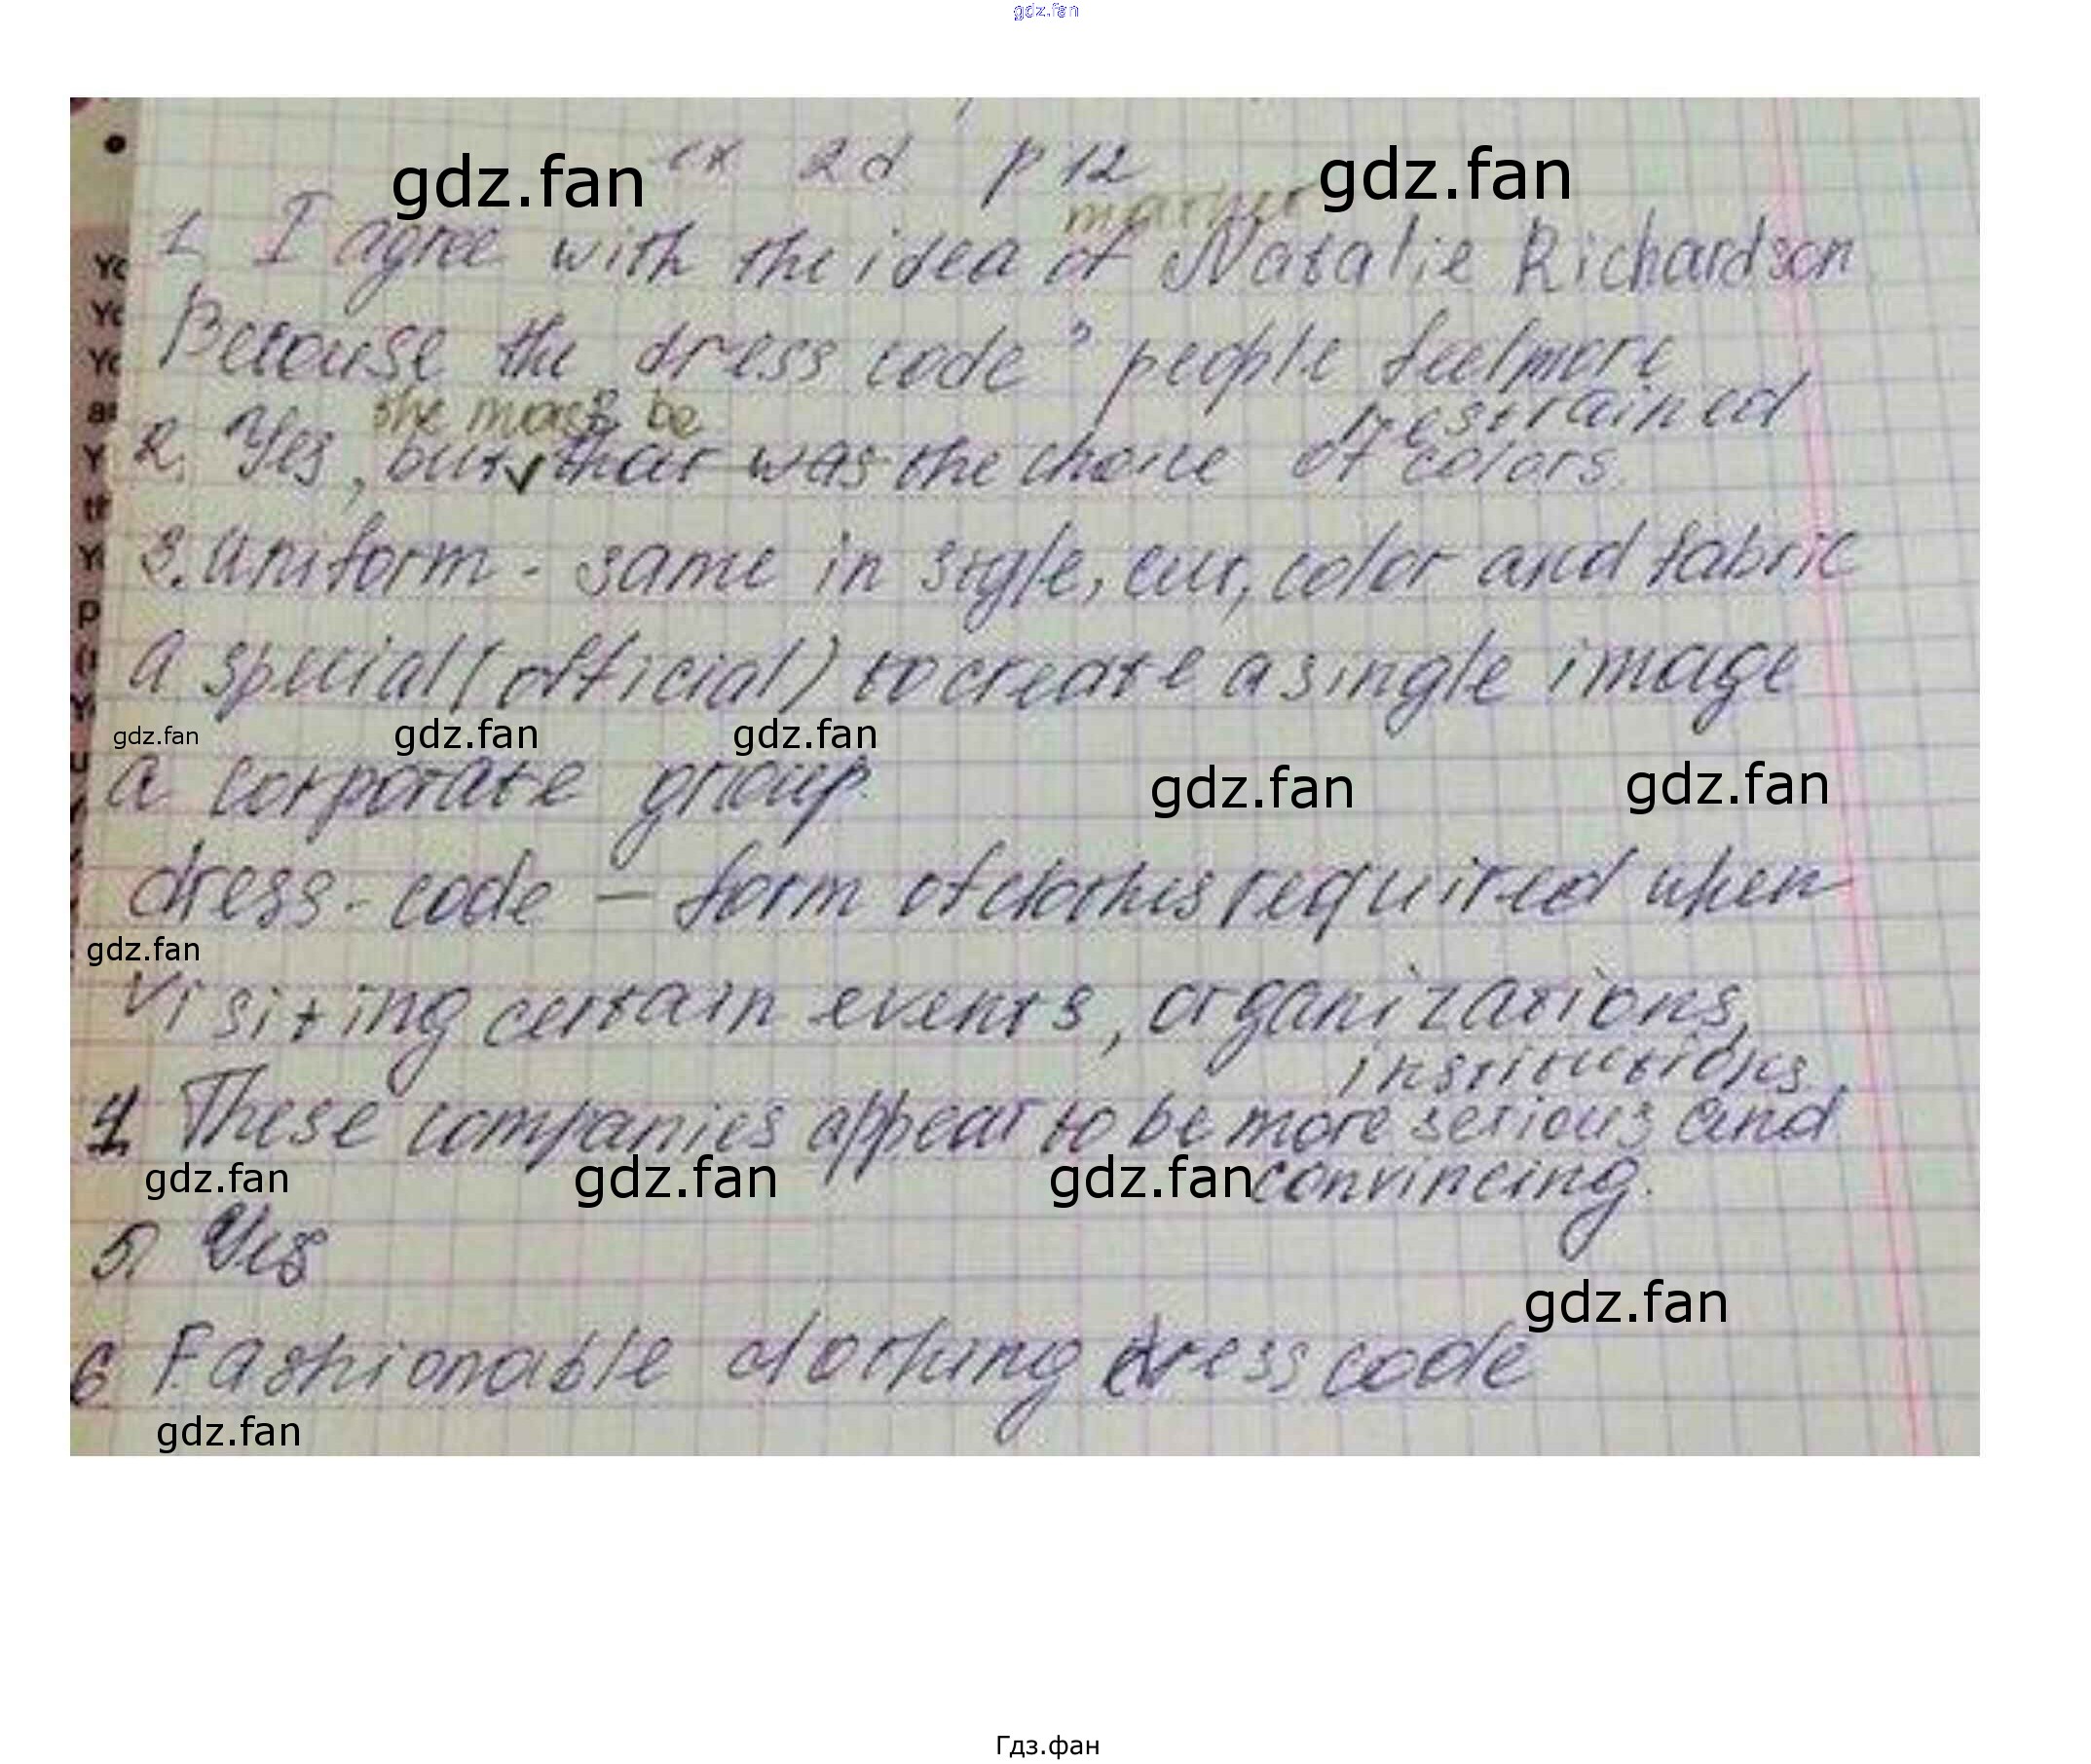 gdz.fan
ex 2d p 12
gdz.fan gdz.fan
1. I agree with the idea of Natalie Richardson
Because the dress code people feel more
restrained
she must be
2. Yes, but that was the choice of colors.
3. uniform - same in style, cut, color and fabric
a special (official) to create a single image
gdz.fan gdz.fan gdz.fan
a corporate group.
gdz.fan gdz.fan
dress-code – form of clothes required when
gdz.fan
visiting certain events, organizations,
institutions.
4. These companies appear to be more serious and
convincing.
gdz.fan gdz.fan gdz.fan
5. Yes
gdz.fan
6. Fashionable clothing dress code
gdz.fan
Гдз.фан